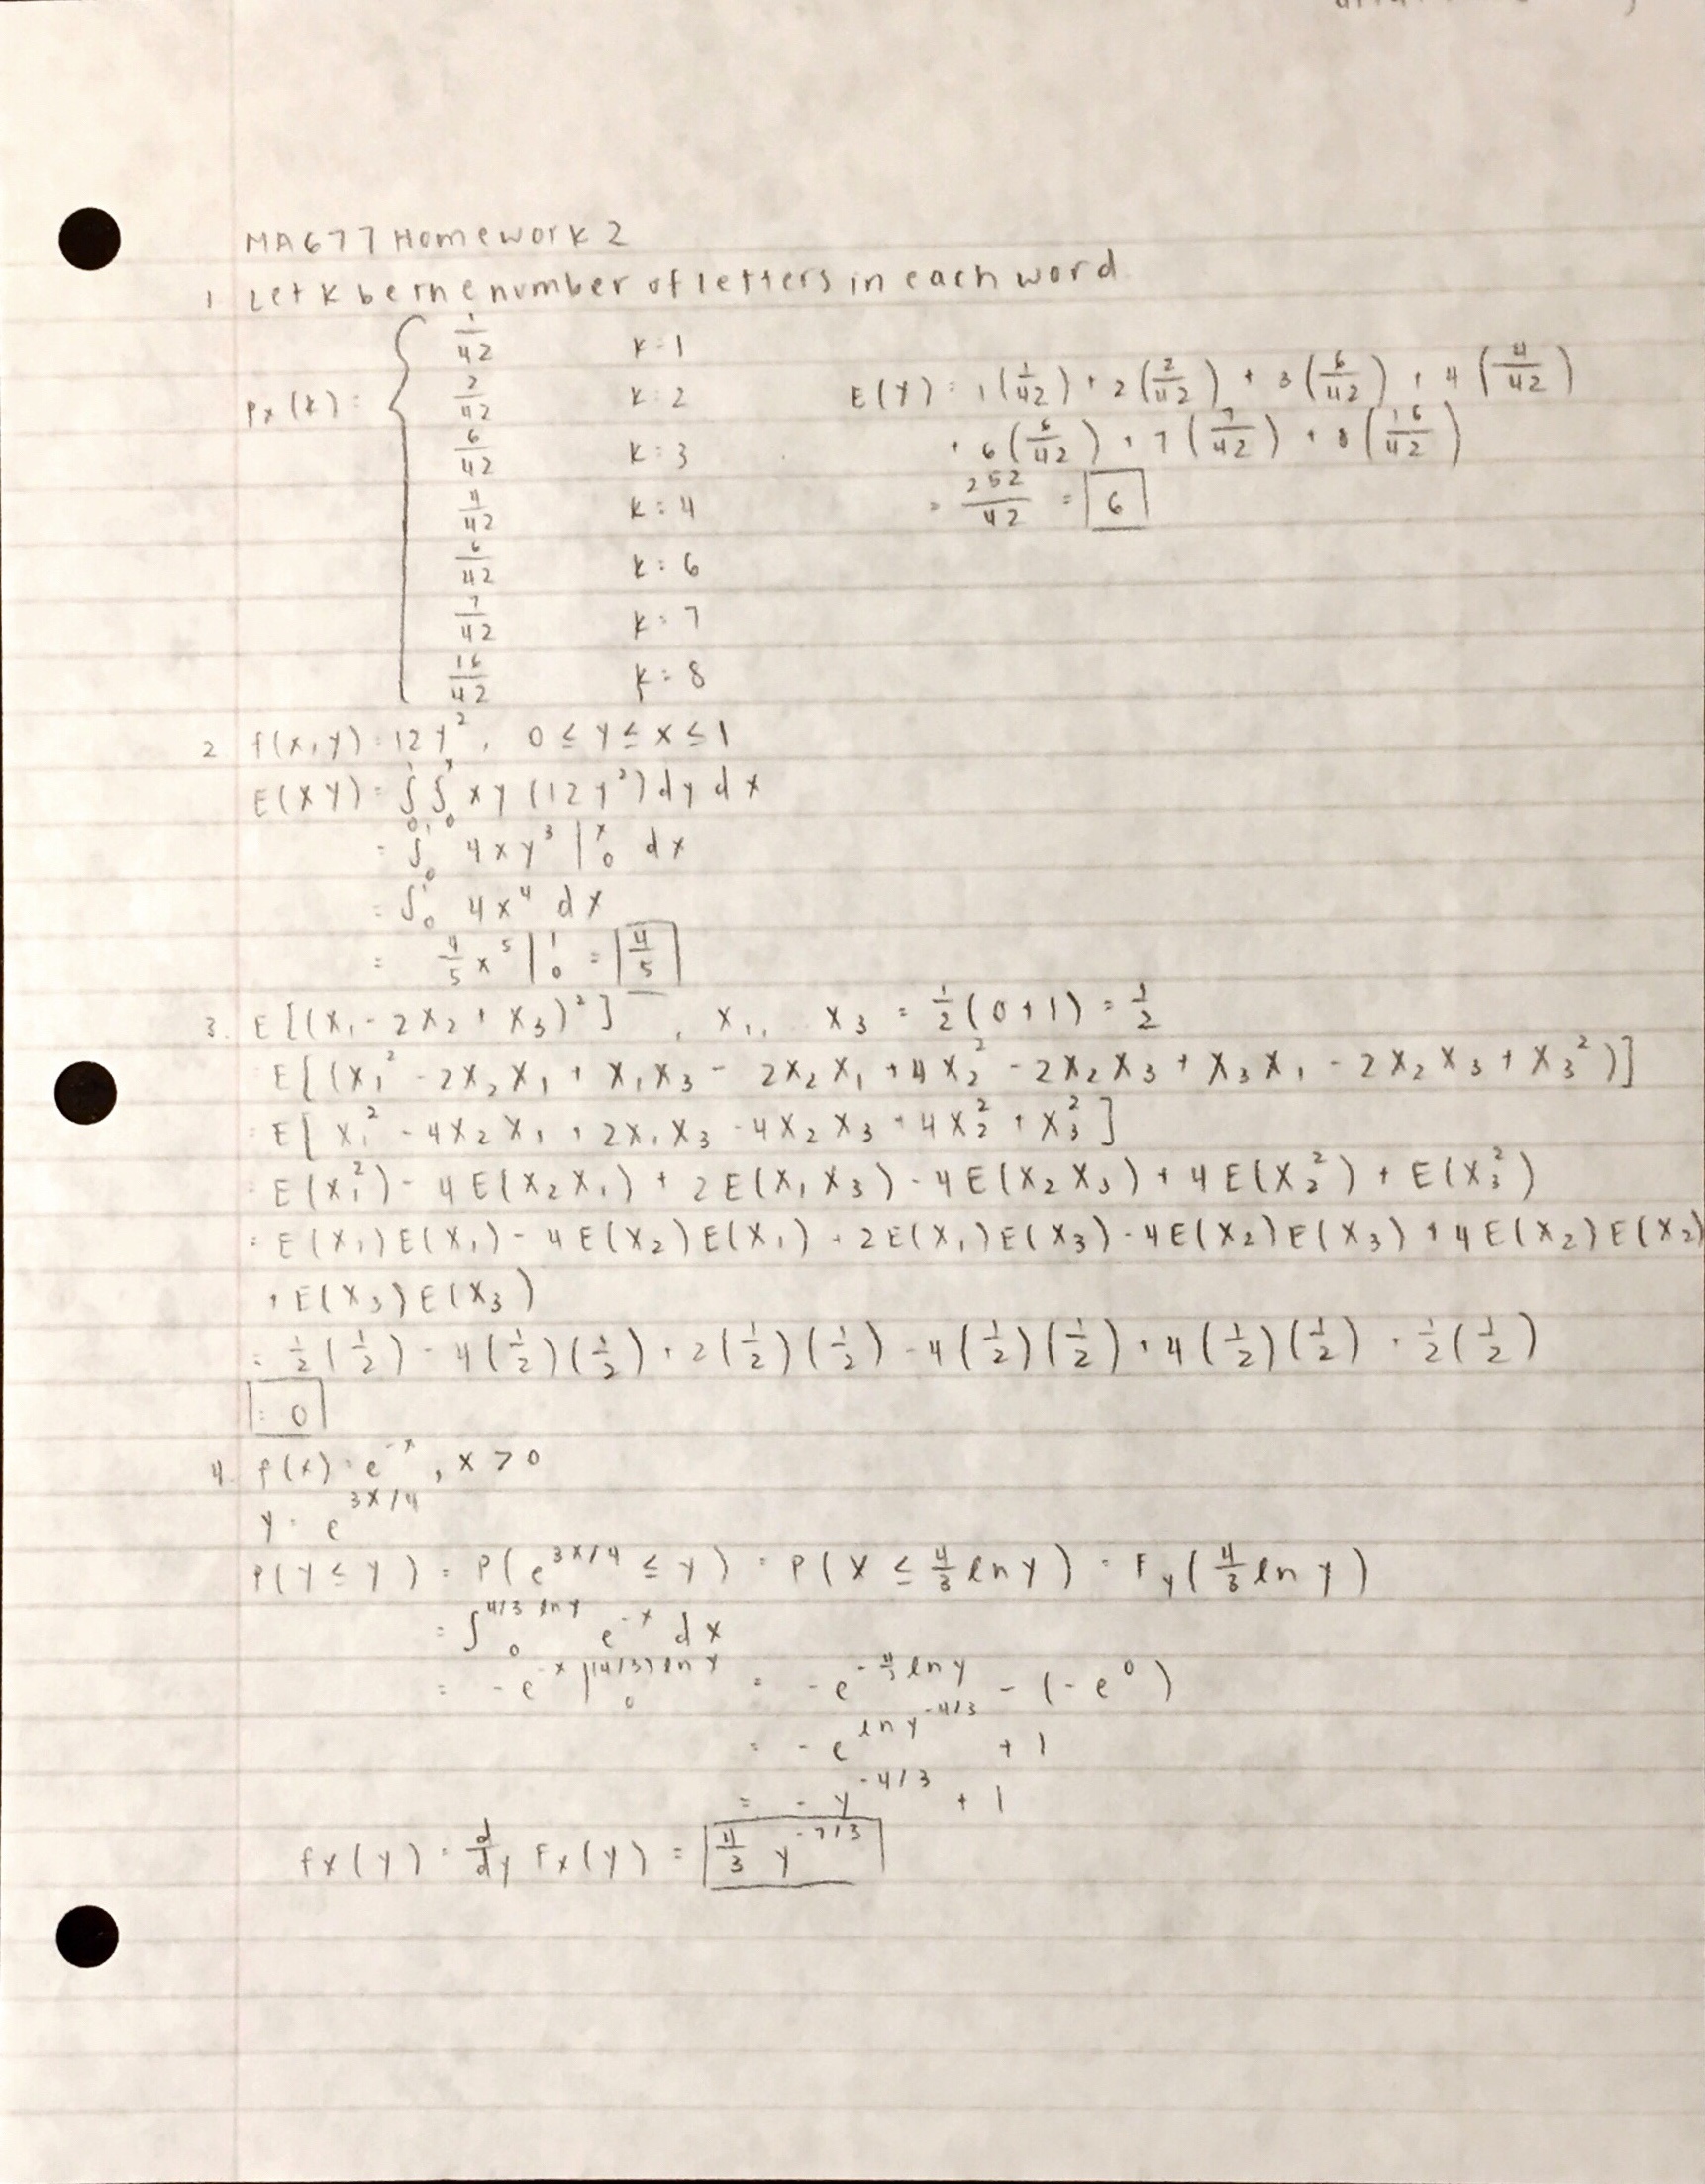 MA677 Homework 2
1 Let k be the number of letters in each word
Px(k) = { 1/42 k=1
2/42 k=2
6/42 k=3
4/42 k=4
6/42 k=6
7/42 k=7
16/42 k=8
E(Y) = 1(1/42) + 2(2/42) + 3(6/42) + 4(4/42)
+ 6(6/42) + 7(7/42) + 8(16/42)
= 252/42 = 6
2 f(x,y) = 12y², 0 ≤ y ≤ x ≤ 1
E(XY) = ∫₀¹ ∫₀ˣ xy (12y²) dy dx
= ∫₀¹ 4xy³ |₀ˣ dx
= ∫₀¹ 4x⁴ dx
= 4/5 x⁵ |₀¹ = 4/5
3. E[(X₁ - 2X₂ + X₃)²] , X₁, X₃ = 1/2 (0+1) = 1/2
E[(X₁² - 2X₂X₁ + X₁X₃ - 2X₂X₁ + 4X₂² - 2X₂X₃ + X₃X₁ - 2X₂X₃ + X₃²)]
= E[X₁² - 4X₂X₁ + 2X₁X₃ - 4X₂X₃ + 4X₂² + X₃²]
= E(X₁²) - 4E(X₂X₁) + 2E(X₁X₃) - 4E(X₂X₃) + 4E(X₂²) + E(X₃²)
= E(X₁)E(X₁) - 4E(X₂)E(X₁) + 2E(X₁)E(X₃) - 4E(X₂)E(X₃) + 4E(X₂)E(X₂)
+ E(X₃)E(X₃)
= 1/2(1/2) - 4(1/2)(1/2) + 2(1/2)(1/2) - 4(1/2)(1/2) + 4(1/2)(1/2) + 1/2(1/2)
= 0
4. f(x) = e^(-x), x > 0
Y = e^(3X/4)
P(Y ≤ y) = P(e^(3X/4) ≤ y) = P(X ≤ 4/3 ln y) = F_y(4/3 ln y)
= ∫₀^(4/3 ln y) e^(-x) dx
= -e^(-x) |₀^((4/3) ln y) = -e^(-4/3 ln y) - (-e⁰)
= -e^(ln y^(-4/3)) + 1
= -y^(-4/3) + 1
fx(y) = d/dy Fx(y) = 4/3 y^(-7/3)